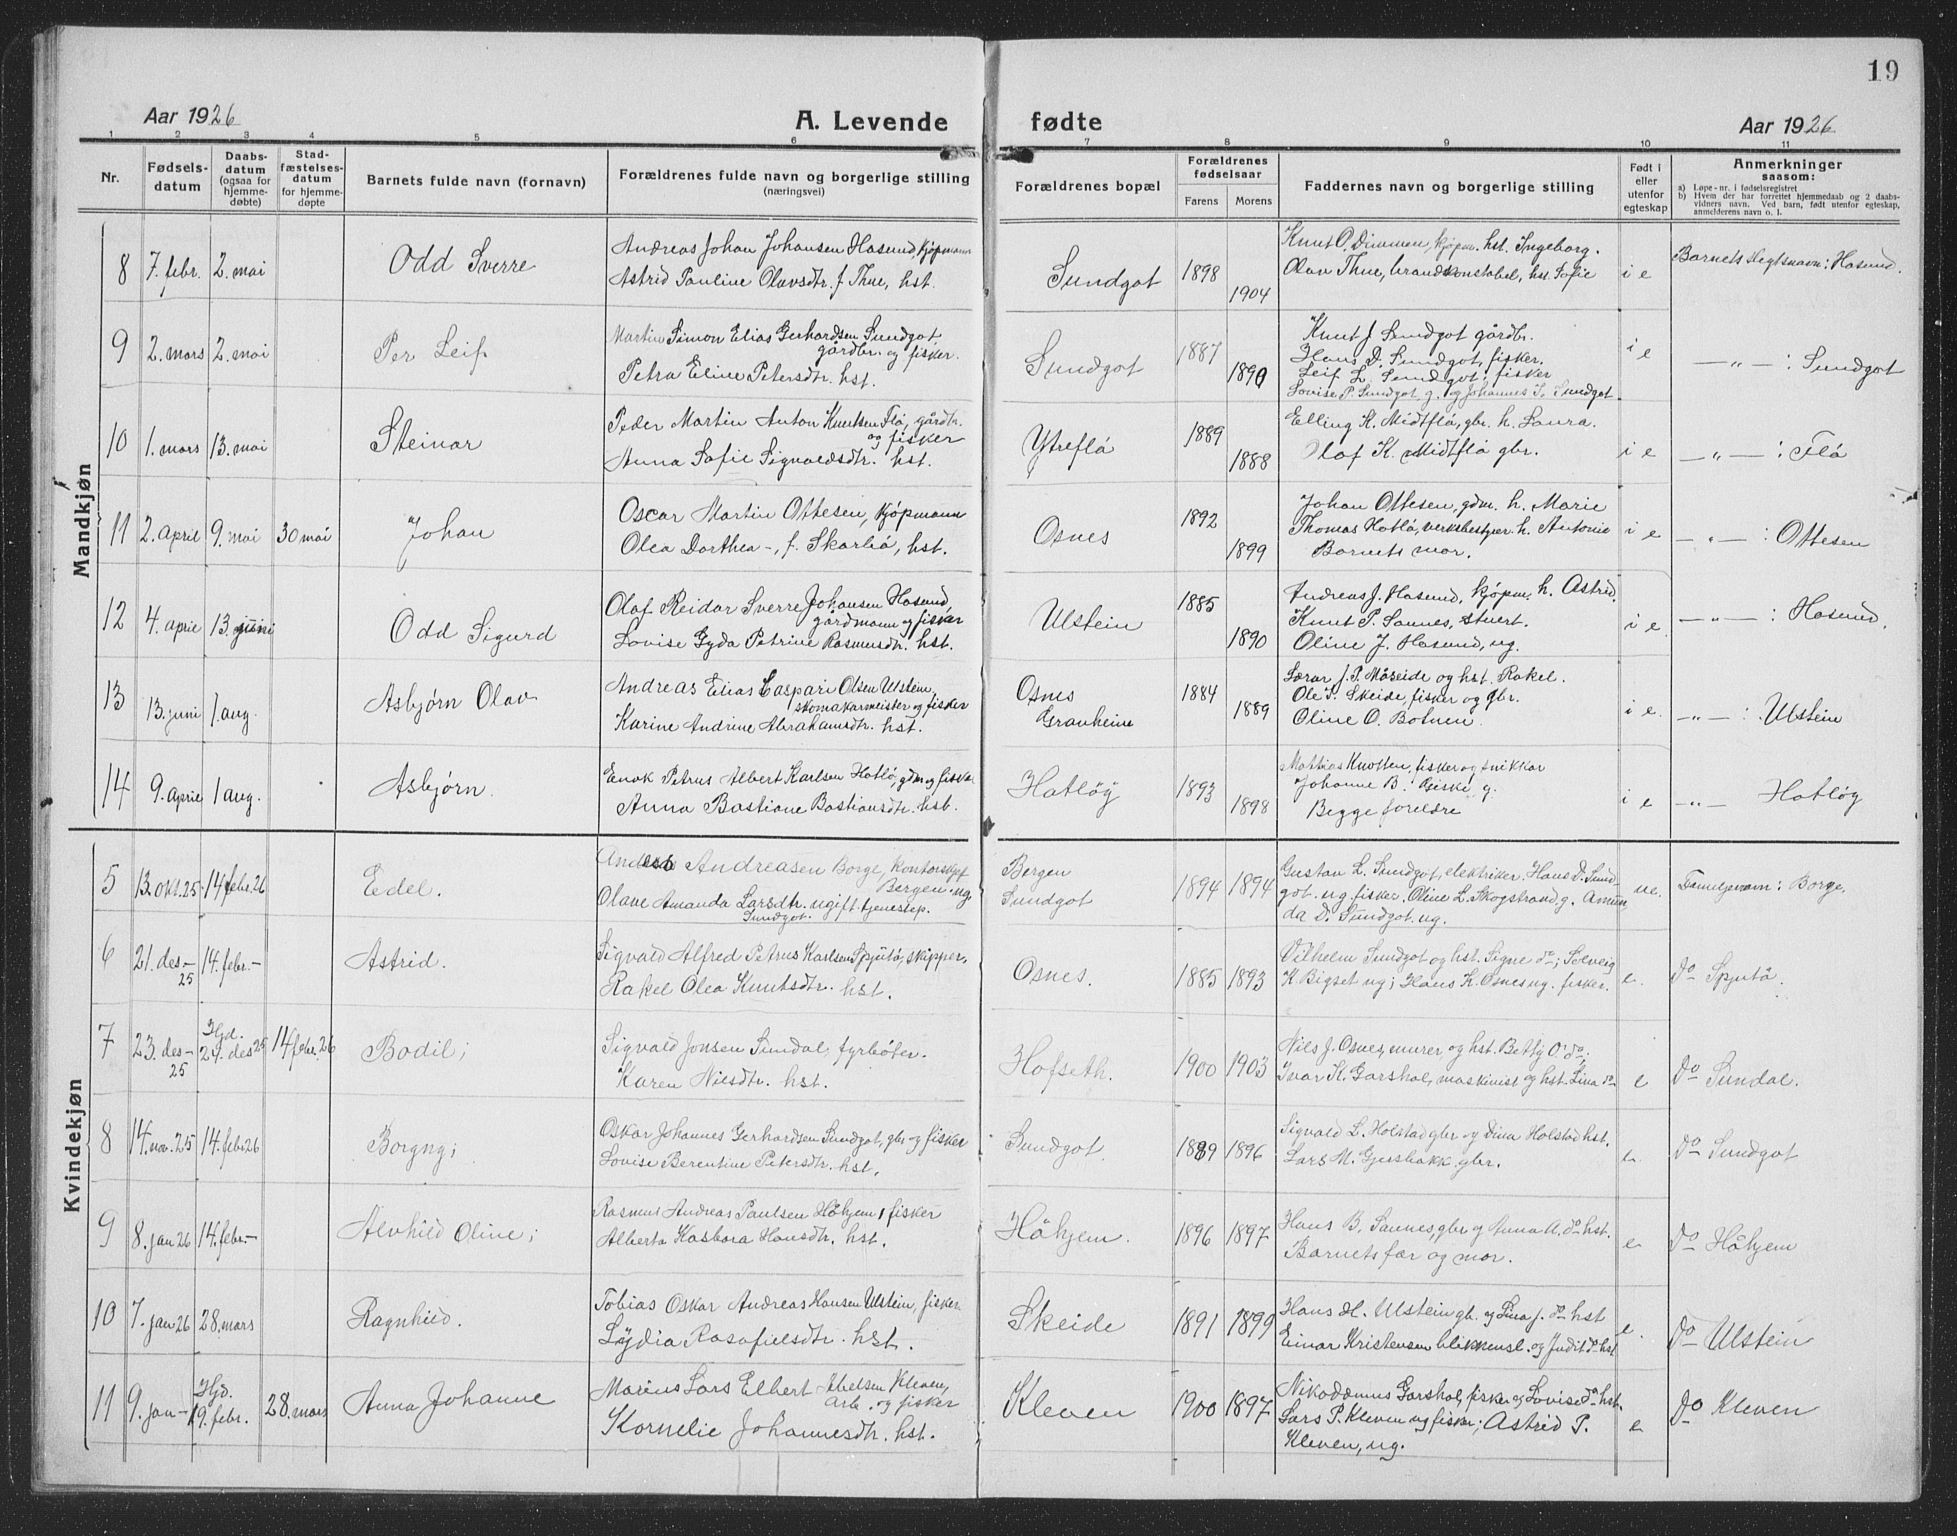 19
Aar 1926 A. Levende fødte Aar 1926
1 2 3 4 5 6 7 8 9 10 11
Nr.
Fødsels-
datum
Daabs-
datum
(ogsaa for
hjemme-
døbte)
Stad-
fæstelses-
datum
for hjemme-
døpte
Barnets fulde navn (fornavn)
Forældrenes fulde navn og borgerlige stilling
(næringsvei)
Forældrenes bopæl
Forældrenes
fødselsaar
Farens Morens
Faddernes navn og borgerlige stilling
Født i
eller
utenfor
egteskap
Anmerkninger
saasom:
a) Løpe-nr. i fødselsregistret
b) Hvem der har forrettet hjemmedaab og 2 daabs-
vidners navn. Ved barn, født utenfor egteskap,
anmelderens navn o. l.
Mandkjøn
8 7. febr. 2. mai Odd Sverre
Andreas Johan Johansen Hasund, kjøpmann
Astrid Pauline Olavsdtr. f. Thue, hst.
Sundgot 1898 1904
Knut O. Dimmen, kjøpm. hst. Ingeborg.
Olav Thue, brandkonstabel, hst. Sofie
i e
Barnets slegtsnavn: Hasund.
9 2. mars 2. mai Per Leif
Martin Simon Elias Gerhardsen Sundgot,
gårdbr. og fisker.
Petra Eline Petersdtr. hst.
Sundgot 1887 1890
Knut J. Sundgot gårdbr.
Hans D. Sundgot, fisker.
Leif L. Sundgot, fisker
Lovise P. Sundgot g. og Johannes S. Sundgot.
i e
—„— : Sundgot
10 1. mars 13. mai Steinar
Peder Martin Anton Knutsen Flø, gårdbr.
og fisker
Anna Sofie Sigvaldsdtr. hst.
Ytreflå 1889 1888
Elling K. Midtflå, gbr. h. Laura.
Olaf K. Midtflå gbr.
i e
—„— : Flå
11 2. april 9. mai 30 mai Johan
Oscar Martin Ottesen, kjøpmann
Olea Dorthea -, f. Skarbø, hst.
Osnes 1892 1899
Johan Ottesen, gdm. h. Marie
Thomas Hatlø, verksbestyrer h. Antonie
Barnets mor.
i e
—„— : Ottesen
12 4. april 13. juni Odd Sigurd
Olaf Reidar Sverre Johansen Hasund,
gårdmann og fisker
Lovise Gyda Petrine Rasmusdtr. hst.
Ulstein 1885 1890
Andreas J. Hasund, kjøpm. h. Astrid.
Knut P. Sannes, stuert.
Oline J. Hasund, ug.
i e.
—„— : Hasund.
13 13. juni 1. aug. Asbjørn Olav
Andreas Elias Caspari Olsen Ulstein,
skomakarmeister og fisker
Karine Andrine Abrahamsdtr. hst.
Osnes
Granheim
1884 1889
Lærar J. P. Måseide og hst. Rakel.
Ole S. Skeide, fisker og gbr.
Oline O. Botnen.
i e.
—„— : Ulstein
14 9. april 1 aug. Asbjørn.
Enok Petrus Albert Karlsen Hatlø, gdm og fisker
Anna Bastiane Bastiansdtr. hst.
Hatløy 1893 1898
Mathias Knotten, fisker og snikkar
Johanne B. Giske g.
Begge foreldre
i e
—„— Hatløy
Kvindekjøn
5 13. okt. 25 14 febr. 26 Edel.
Andreasen Borge, kontorskjef
Bergen ug
Olave Amanda Larsdtr. ugift tjenestep.
Sundgot.
Bergen
Sundgot
1894 1894
Gustav L. Sundgot, elektriker. Hans D. Sund-
got. ug. fisker. Oline L. Skogstrand g. Aman-
da D. Sundgot. ug.
ue.
Familjenavn: Borge.
6 21. des- 25 14. febr.- Astrid.
Sigvald Alfred Petrus Karlsen Spjutø, skipper,
Rakel Olea Knutsdtr. hst.
Osnes. 1885 1893
Vilhelm Sundgot og hst. Signe do; Solveig
K. Bigset ug; Hans K. Osnes ug. fisker.
e.
do Spjutå.
7 23. des- 25 Hjd. 24. des 25 14 febr. 26 Bodil;
Sigvald Jonsen Sundal, fyrbøter.
Karen Nilsdtr. hst.
Hofseth. 1900 1903
Nils J. Osnes, murer og hst. Betty O. do;
Ivar K. Garshol, maskinist og hst. Lina do
e
do Sundal.
8 14. nov. 25 14. febr 26 Borgny;
Oskar Johannes Gerhardsen Sundgot, gbr og fisker
Lovise Berentine Petersdtr. hst.
Sundgot. 1889 1896
Sigvald L. Holstad gbr og Dina Holstad hst.
Lars M. Gjersbakk gbr.
e.
do Sundgot
9 8. jan 26 14. febr.- Alvhild Oline;
Rasmus Andreas Paulsen Håhjem, fisker
Alberta Kasbora Hansdtr. hst.
Håhjem. 1896 1897
Hans B. Sannes, gbr og Anna A. do hst.
Barnets far og mor.
e
do Håhjem
10 7. jan 26 28. mars Ragnhild.
Tobias Oskar Andreas Hansen Ulstein, fisker
Lydia Rasafielsdtr. hst.
Skeide 1891 1899
Hans H. Ulstein gb. og Lina J. do hst
Einar Kristensen blikkensl. og Judit do hst
e.
do Ulstein
11 9. jan- Hjd. 19. febr. 28. mars Anna Johanne
Marius Lars Elbert Abelsen Kleven,
arb. og fisker
Kornelie Johannesdtr. hst.
Kleven 1900 1897
Nikodemus Garshol, fisker og Lovise do hst.
Lars P. Kleven ug fisker; Astrid P.
Kleven, ug.
e
do Kleven